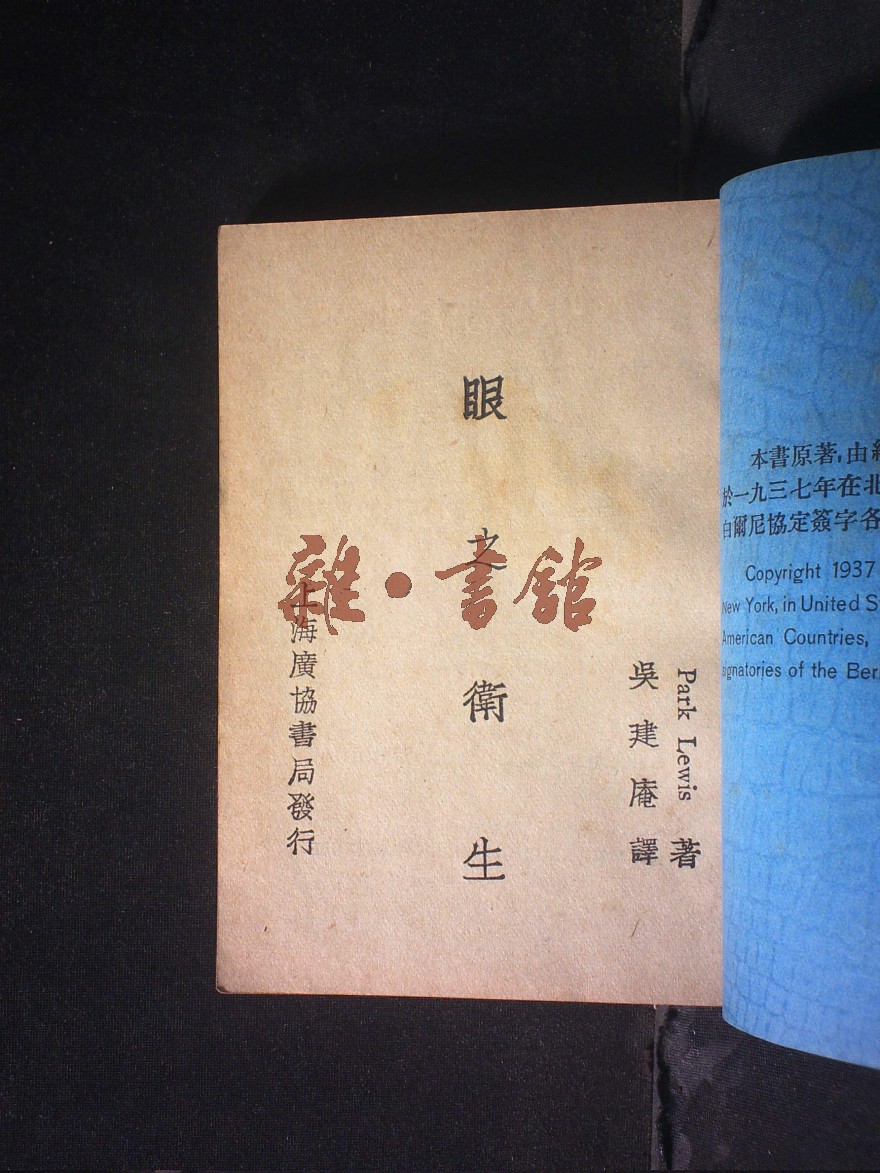 Park Lewis 著
吳建庵譯
眼之衛生
上海廣協書局發行
雜·書館
本書原著,由
於一九三七年在北
白爾尼協定簽字各
Copyright 1937
New York, in United
American Countries,
signatories of the